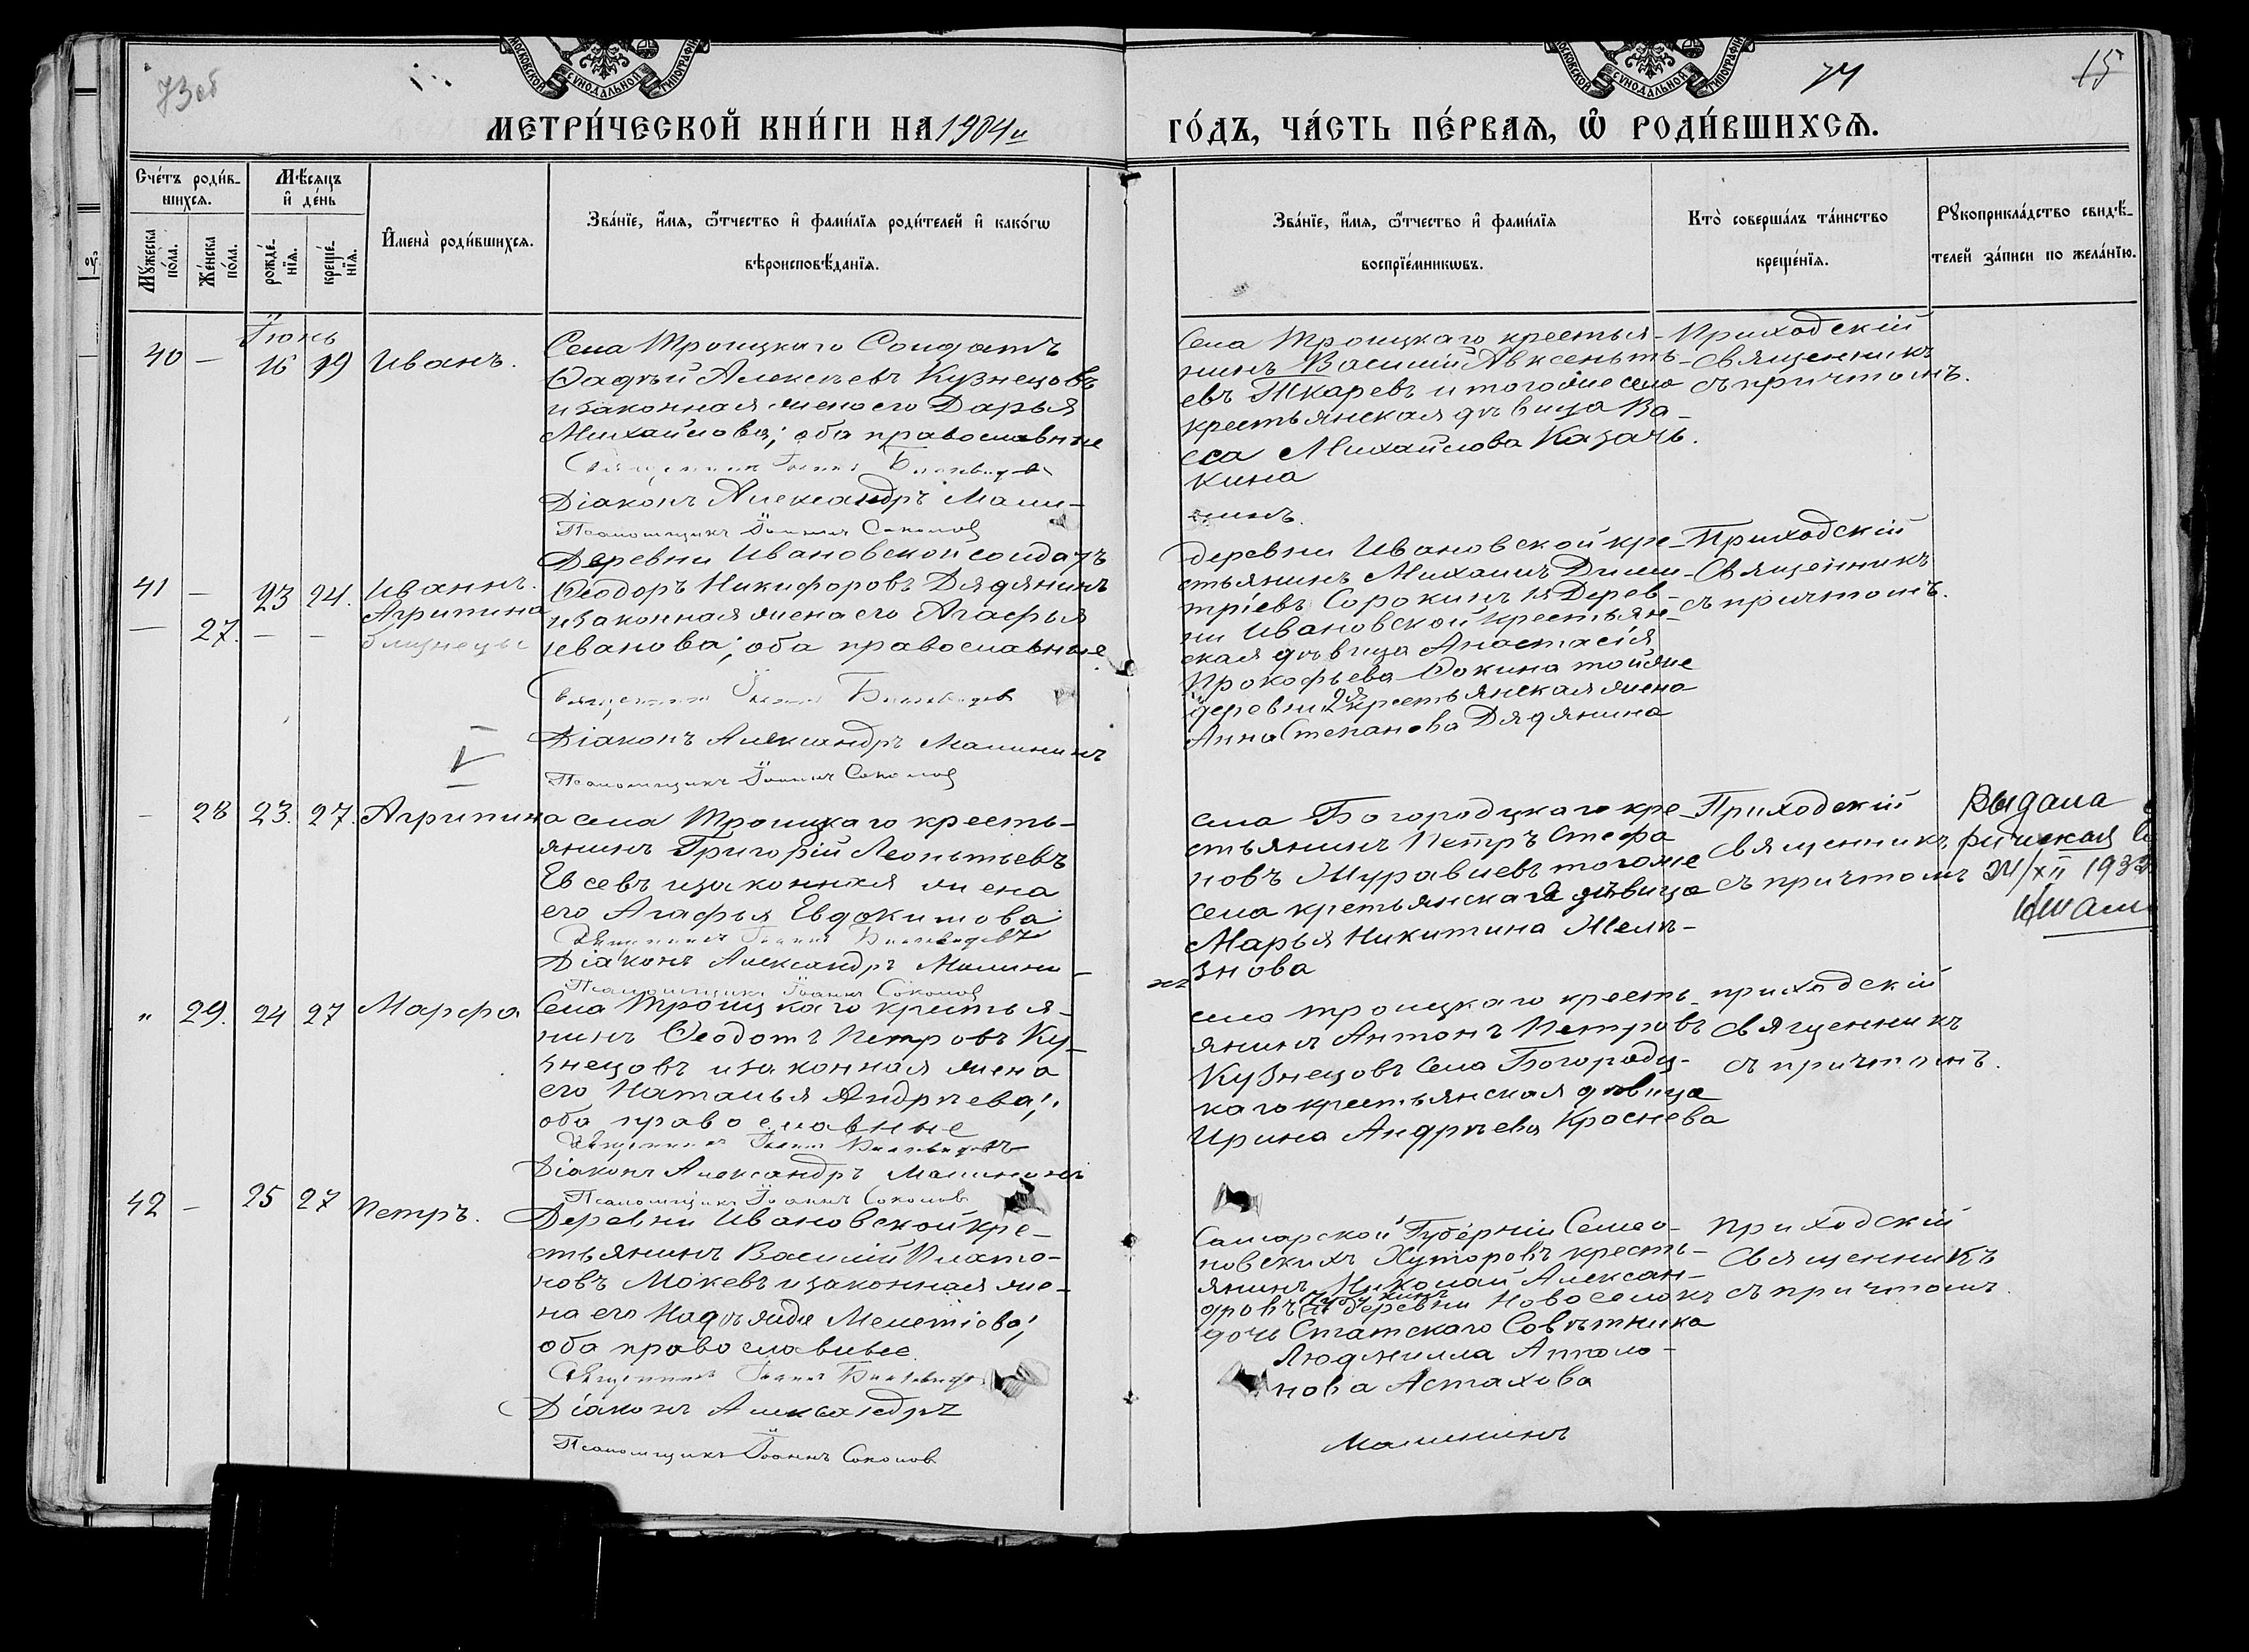 73об
74
15
МОСКОВСКОЙ СѴНОДАЛЬНОЙ ТИПОГРАФІИ
МОСКОВСКОЙ СѴНОДАЛЬНОЙ ТИПОГРАФІИ
МЕТРИ́ЧЕСКОЙ КНИ́ГИ НА 1904й
ГО́ДЪ, ЧА́СТЬ ПЕ́РВАѦ, Ѡ҆ РОДИ́ВШИХСѦ.
Сче́тъ роди́в-
шихсѧ.
Мѣ́сѧцъ
и҆ де́нь
Мꙋ́жеска
по́ла.
Же́нска
по́ла.
рожде́-
нїѧ.
креще́-
нїѧ.
И҆мена̀ роди́вшихсѧ.
Зва́нїе, и҆́мѧ, ѻ҆́тчество и҆ фами́лїѧ роди́телей и҆ како́гѡ
вѣроисповѣ́данїѧ.
Зва́нїе, и҆́мѧ, ѻ҆́тчество и҆ фами́лїѧ
воспрїе́мникѡвъ.
Кто̀ соверша́лъ та́инство
креще́нїѧ.
Рꙋкоприкла́дство свидѣ́-
телей за́писи по жела́нїю.
Іюнь
40 — 16 19 Иванъ.
Села Троицкаго Солдатъ
Ѳадѣй Алексѣевъ Кузнецовъ
и законная жена его Дарья
Михайлова; оба православные
Священникъ Іоаннъ
Діаконъ Александръ Мали-
нинъ.
Псаломщикъ Іоаннъ Соколовъ
Села Троицкаго крестья-
нинъ Василій Авксентъ-
евъ Шкаревъ и тогоже села
крестьянская дѣвица Ва-
сса Михайлова Казачь.
кина
Приходскій
Священникъ
съ причтомъ.
41 — 23 24. Иваннъ.
— 27. — — Агрипина
близнецы
Деревни Ивановской солдатъ
Ѳеодоръ Никифоровъ Дядянинъ
и законная жена его Агафья
Иванова; оба православные
Священникъ Іоаннъ
Діаконъ Александръ Малининъ
Псаломщикъ Іоаннъ Соколовъ
Деревни Ивановской кре-
стьянинъ Михаилъ Дими-
тріевъ Сорокинъ 1я Дерев-
ни Ивановской крестьян-
ская дѣвица Анастасія
Прокофьева Ѳокина тойже
деревни 2я крестьянская жена
Анна Степанова Дядянина
Приходскій
Священникъ
съ причтомъ.
— 28 23. 27. Агрипина
села Троицкаго кресть-
янинъ Григорій Леонтьевъ
Евсевъ и законная жена
его Агафья Евдокимова
Священникъ Іоаннъ
Діаконъ Александръ Малини-
нъ
Псаломщикъ Іоаннъ Соколовъ
села Богородцкаго кре-
стьянинъ Петръ Стефа
новъ Журавлевъ тогоже
села кретьянская дѣвица
Марья Никитина Желѣ-
знова
Приходскій
священникъ
съ причтомъ
Выдана
24/XII 193
" 29. 24 27 Марфа
Села Троицкаго крестья-
нинъ Ѳеодотъ Петровъ Ку-
знецовъ и законная жена
его Наталья Андрѣева;
оба православные
Священникъ Іоаннъ
Діаконъ Александръ Малининъ
Псаломщикъ Іоаннъ Соколовъ
села троицкаго кресть-
янинъ Антонъ Петровъ
Кузнецовъ Села Богородц-
каго крестьянская дѣвица
Ирина Андрѣева Краснева
приходскій
священникъ
съ причтомъ.
42 — 25 27 Петръ.
Деревни Ивановской кре-
стьянинъ Василій Плато-
новъ Мокевъ и законная же-
на его Надѣжда Мелетіева;
оба православные
Священникъ Іоаннъ
Діаконъ Александръ
Малининъ
Псаломщикъ Іоаннъ Соколовъ
Самарской Губерніи Семео-
новскихъ Хуторовъ кресть-
янинъ Николай Алексан-
дровъ и деревни Новоселокъ
дочь Статскаго Совѣтника
Людмилла Аполло-
нова Астахова
приходскій
священникъ
съ причтомъ.